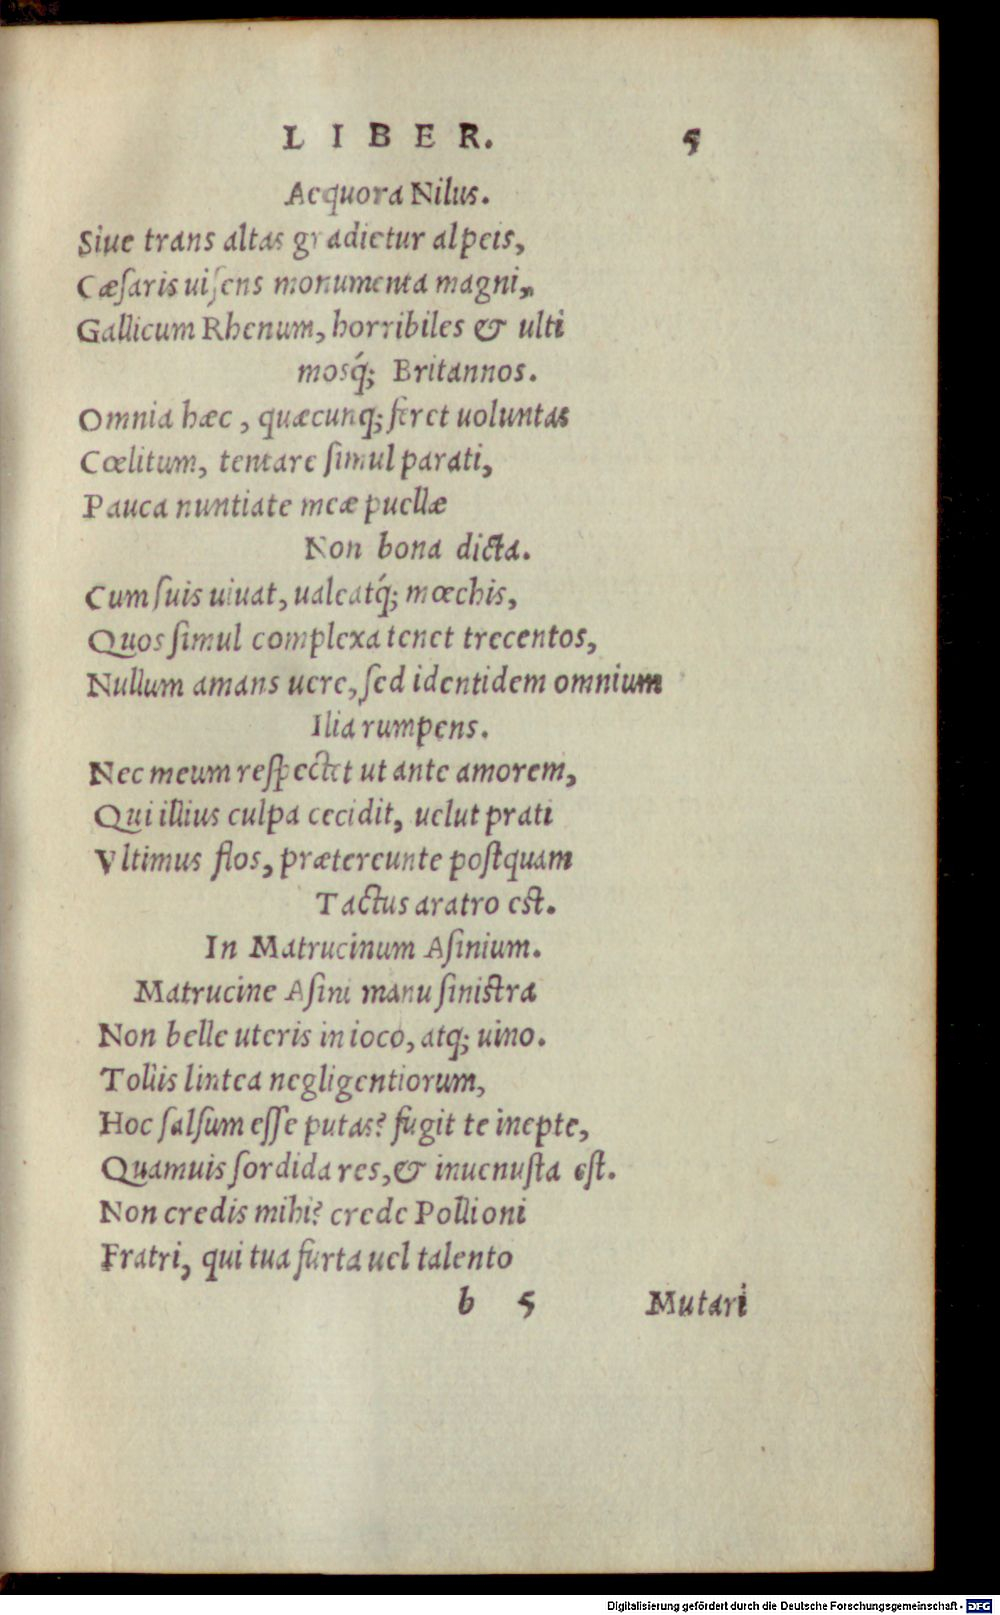 LIBER. 5
Aequora Nilus.
Siue trans altas gradietur alpeis,
Cæſaris uiſens monumenta magni,
Gallicum Rhenum, horribiles & ulti
mosq́; Britannos.
Omnia hæc, quæcunq; feret uoluntas
Cœlitum, tentare ſimul parati,
Pauca nuntiate meæ puellæ
Non bona dicta.
Cum ſuis uiuat, ualeatq́; mœchis,
Quos ſimul complexa tenet trecentos,
Nullum amans uere, ſed identidem omnium
Ilia rumpens.
Nec meum reſpectet ut ante amorem,
Qui illius culpa cecidit, uelut prati
Vltimus flos, prætereunte poſtquam
Tactus aratro eſt.
In Matrucinum Aſinium.
Matrucine Aſini manu ſiniſtra
Non belle uteris in ioco, atq; uino.
Tollis lintea negligentiorum,
Hoc ſalſum eſſe putas? fugit te inepte,
Quamuis ſordida res, & inuenuſta eſt.
Non credis mihi? crede Pollioni
Fratri, qui tua furta uel talento
b 5 Mutari
Digitalisierung gefördert durch die Deutsche Forschungsgemeinschaft - DFG